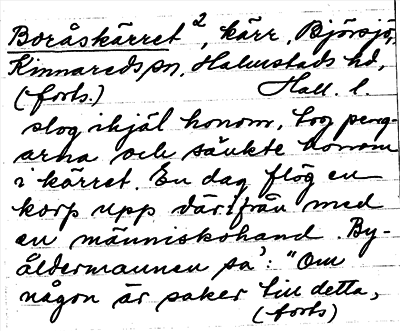 Boråskärret 2, kärr, Björsjö,
Kinnareds sn, Halmstads hd,
(forts.) Hall. l.
slog ihjäl honom, tog peng-
arna och sänkte honom
i kärret. En dag flög en
korp upp därifrån med
en människohand. By-
åldermannen sa': "Om
någon är saker till detta,
(forts)